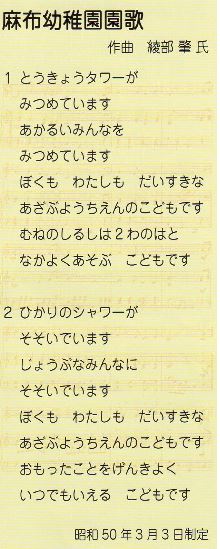 麻布幼稚園園歌
作曲 綾部 肇 氏
1 とうきょうタワーが
みつめています
あかるいみんなを
みつめています
ぼくも わたしも だいすきな
あざぶようちえんのこどもです
むねのしるしは2わのはと
なかよくあそぶ こどもです
2 ひかりのシャワーが
そそいでいます
じょうぶなみんなに
そそいでいます
ぼくも わたしも だいすきな
あざぶようちえんのこどもです
おもったことをげんきよく
いつでもいえる こどもです
昭和50年3月3日制定